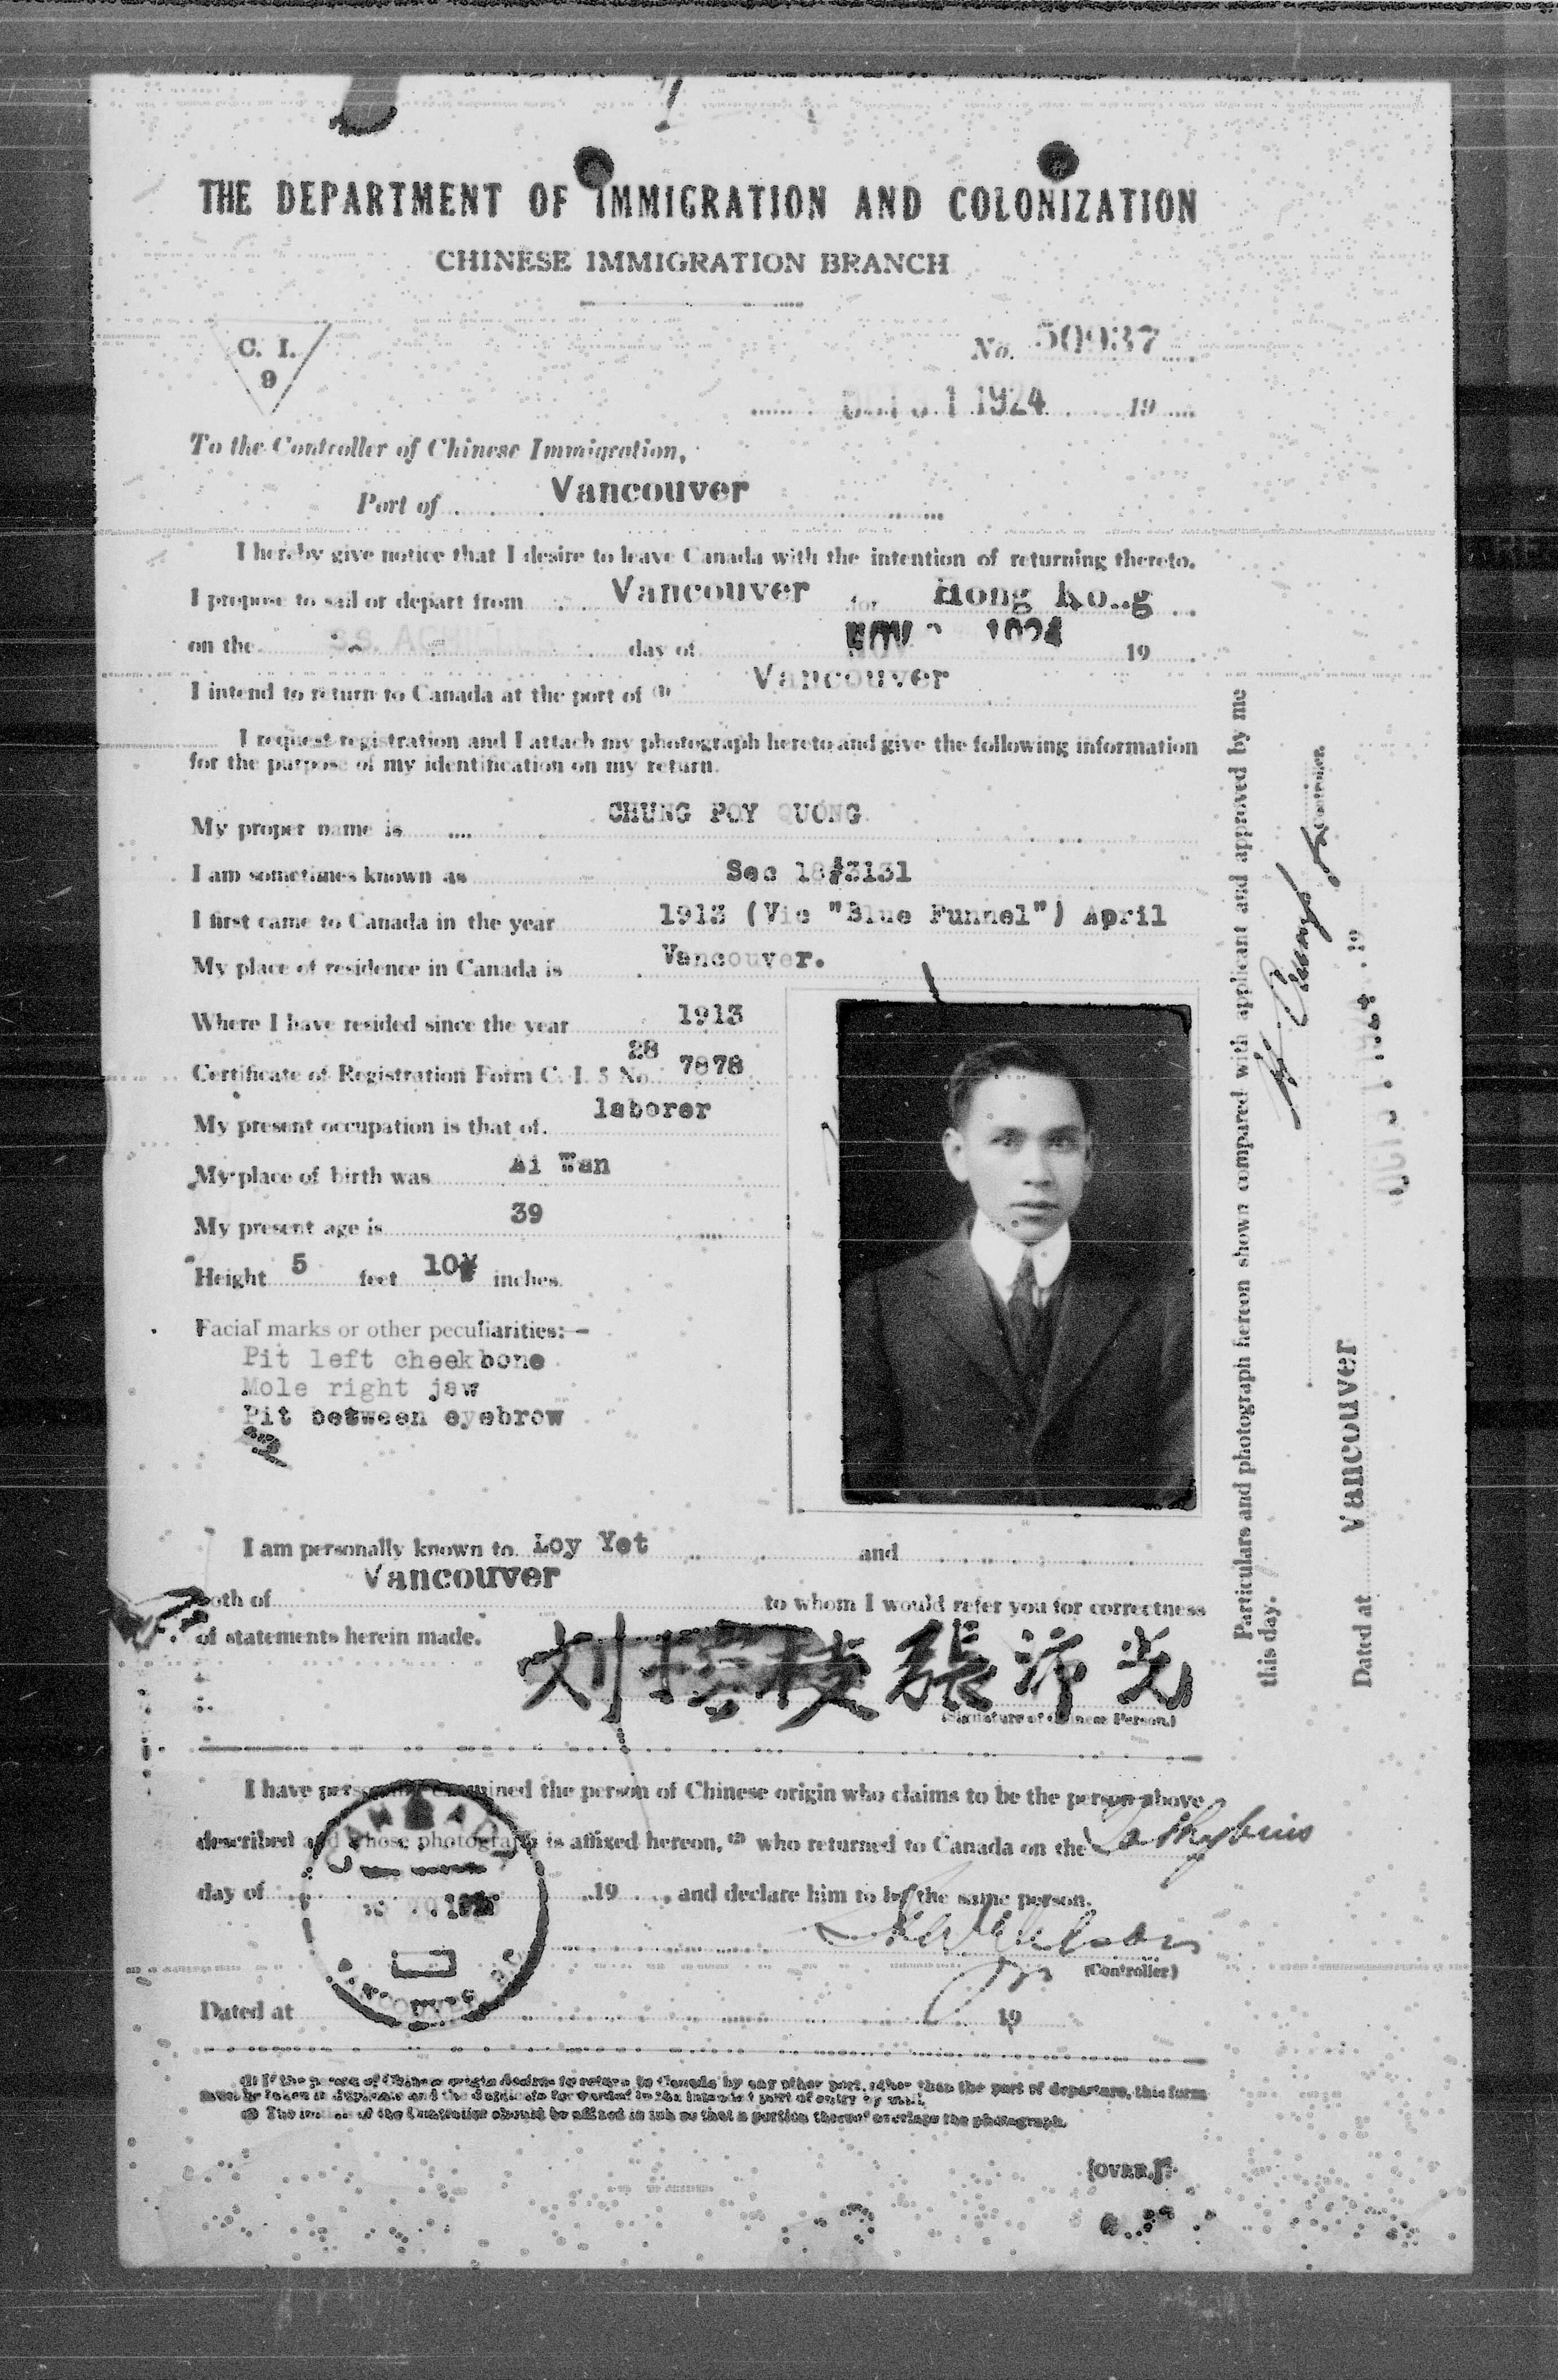 THE DEPARTMENT OF IMMIGRATION AND COLONIZATION
CHINESE IMMIGRATION BRANCH
C. I.
9
No. 50937
OCT 31 1924 19
To the Controller of Chinese Immigration,
Port of Vancouver
I hereby give notice that I desire to leave Canada with the intention of returning thereto.
I propose to sail or depart from Vancouver for Hong Kong
on the SS. ACHILLES day of NOV 1924 19
I intend to return to Canada at the port of (1) Vancouver
I request registration and I attach my photograph hereto and give the following information
for the purpose of my identification on my return.
My proper name is CHUNG POY QUONG
I am sometimes known as Sec 18 #3131
I first came to Canada in the year 1913 (Vic "Blue Funnel") April
My place of residence in Canada is Vancouver.
Where I have resided since the year 1913
28
Certificate of Registration Form C. I. 5 No. 7878
My present occupation is that of laborer
My place of birth was Ai Wan
My present age is 39
Height 5 feet 10 inches.
Facial marks or other peculiarities:—
Pit left cheekbone
Mole right jaw
Pit between eyebrow
I am personally known to Loy Yet and
both of Vancouver to whom I would refer you for correctness
of statements herein made.
張沛光
(Signature of Chinese Person.)
I have personally examined the person of Chinese origin who claims to be the person above
described and whose photograph is affixed hereon, (2) who returned to Canada on the
day of 19 , and declare him to be the same person.
(Controller)
Dated at 19
(1) If the person of Chinese origin desires to return to Canada by any other port, other than the port of departure, this form
must be taken in duplicate and the duplicate forwarded to the intended port of entry by mail.
(2) The initials of the Controller should be affixed in ink so that a portion thereof overlaps the photograph.
[OVER.]
Particulars and photograph hereon shown compared with applicant and approved by me
this day.
Controller.
Dated at Vancouver OCT 31 1924 19
CANADA
VANCOUVER